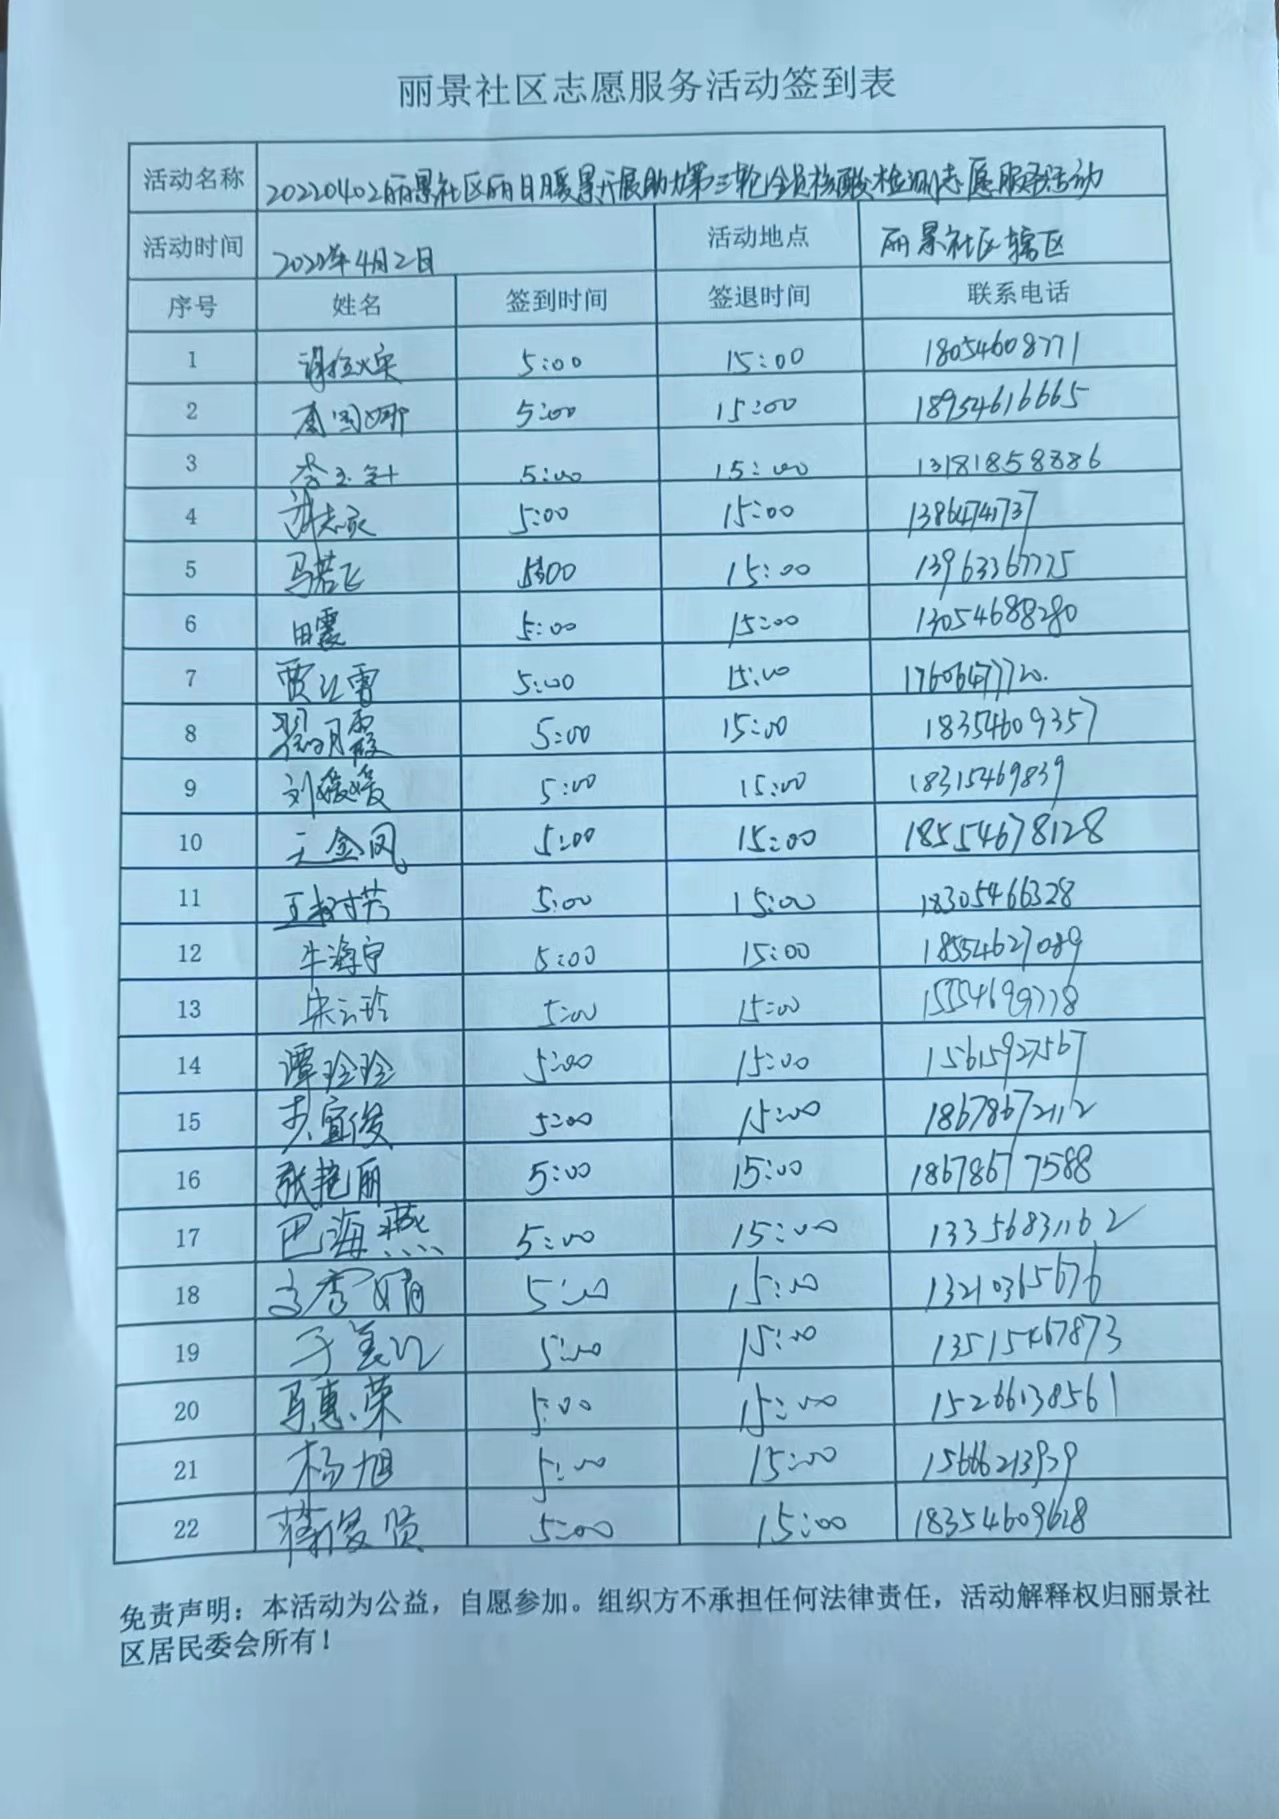 丽景社区志愿服务活动签到表
活动名称 20220402丽景社区丽日暖景开展助力第三轮全员核酸检测志愿服务活动
活动时间 2022年4月2日 活动地点 丽景社区辖区
序号 姓名 签到时间 签退时间 联系电话
1 5:00 15:00 18054608771
2 5:00 15:00 18954616665
3 5:00 15:00 13181858886
4 5:00 15:00
5 马若飞 5:00 15:00 13963367775
6 田震 5:00 15:00 13054688280
7 贾江雪 5:00 15:00 17606477720.
8 翟月霞 5:00 15:00 18354609357
9 刘媛媛 5:00 15:00 18315469839
10 王金凤 5:00 15:00 18554678128
11 王树芳 5:00 15:00 18305466328
12 牛海宁 5:00 15:00 18554627089
13 宋云玲 5:00 15:00 15554699778
14 谭玲玲 5:00 15:00 15615927567
15 宜俊 5:00 15:00 18678672112
16 张艳丽 5:00 15:00 18678677588
17 巴海燕 5:00 15:00 13356831162
18 秀娟 5:00 15:00 13210365676
19 于美江 5:00 15:00 13515467873
20 马惠荣 5:00 15:00 15266138561
21 杨旭 5:00 15:00 15666213929
22 5:00 15:00 18354609628
免责声明：本活动为公益，自愿参加。组织方不承担任何法律责任，活动解释权归丽景社
区居民委会所有！